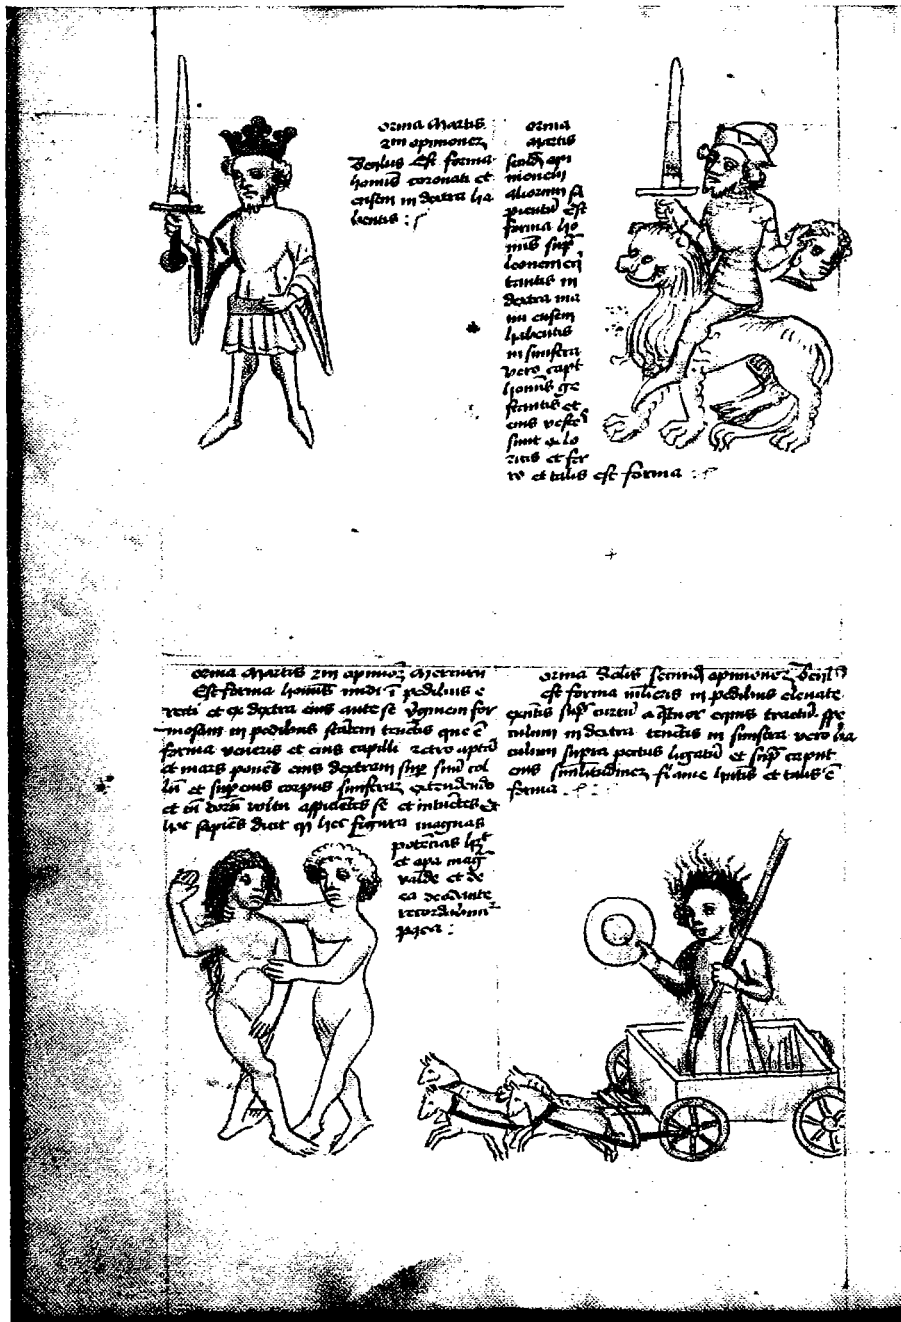 orma martis
zm opinionez
beylus est forma
hominis coronati et
ensem in dextra ha
bentis :
orma
martis
secūdū opi
nionem
aliorum sa
pientū est
forma ho
mīs sup̄
leonem eq̄
tantis in
dextra ma
nu ensem
habentis
in sinistra
vero capt
hominis ge
stantis et
eius vestes
sunt
et fer
et talis est forma :
orma martis zm opinioēz mercurii
Est forma hominis nudi ī pedibus e
recti et ex dextra eius ante se v̄ginem for
mosam in pedibus stātem tenētis que ē
forma veneris et eius capilli retro
et mars ponēs eius dextram sup̄ sinū col
lū et sup̄ eius corpus sinistrā extendendo
et ī volū aspiciētis se et intuētis et
hic sapiēs dixit q̄ hec figura magnas
potētias
et opa mag
valde et de
ea
orma Solis secundū opinionez beyl
est forma mulieris in pedibus eleuate
sup̄ currū a q̄tuor equis tractū spe
culum in dextra tenētis in sinistra vero ba
culum supra pectus ligatū et sup̄ caput
eius similitudinez et talis ē
forma .